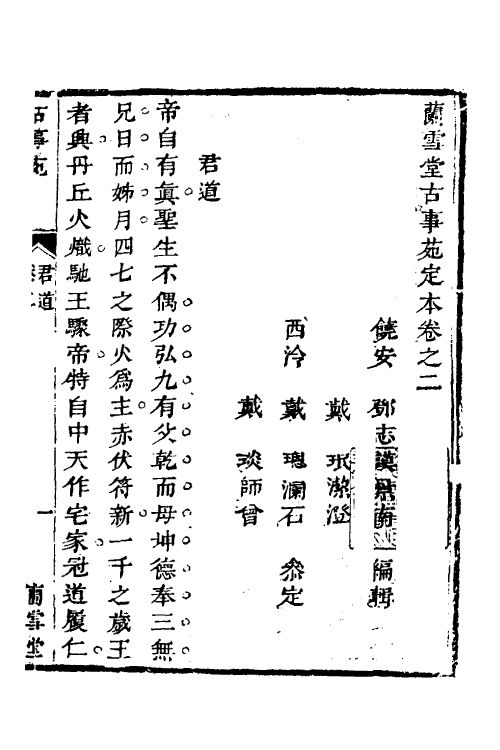 蘭雪堂古事苑定本卷之二
饒安 鄧志謨景南 編輯
戴 珉潔澄
西泠 戴 璁瀾石 叅定
戴 琰師曾
君道
帝自有眞聖生不偶功弘九有父乾而母坤德奉三無
兄日而姊月四七之際火爲主赤伏符新一千之歲王
者興丹丘火熾馳王驟帝特自中天作宅家冠道履仁
古事苑 君道 一 蘭雪堂